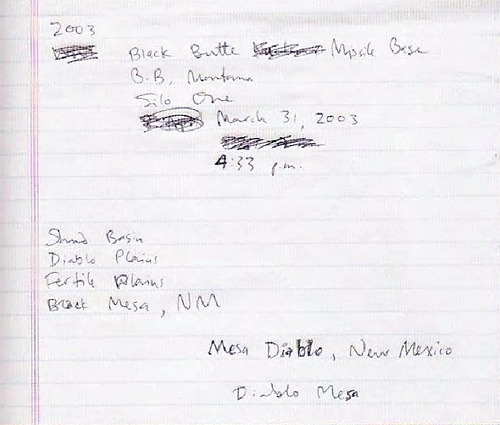 2003
Black Butte Missile Base
B.B, Montana
Silo One
March 31, 2003
4:33 p.m.
Basin
Diablo Plains
Fertile Plains
Black Mesa, NM
Mesa Diablo, New Mexico
Diablo Mesa